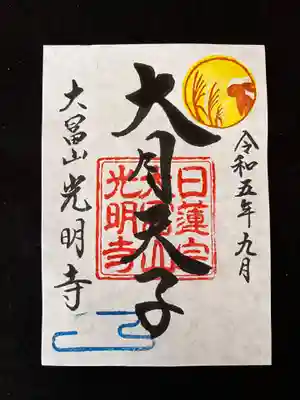 令和五年九月
大月天子
日蓮宗
大冨山
光明寺
大冨山光明寺